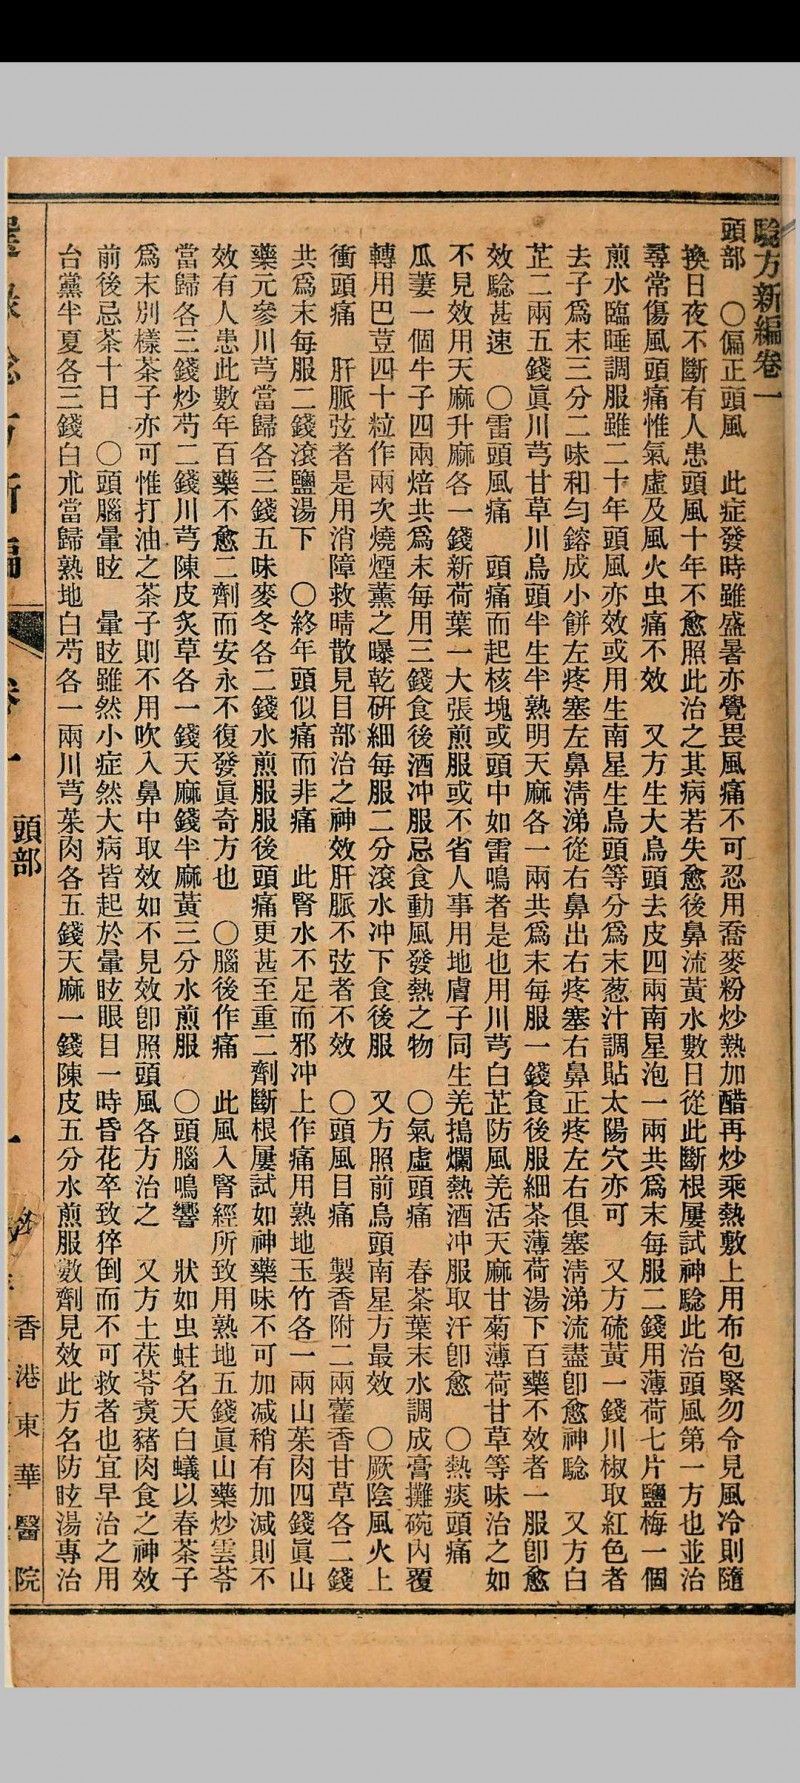 驗方新編卷一
頭部　〇偏正頭風　此症發時雖盛暑亦覺畏風痛不可忍用喬麥粉炒熱加醋再炒乘熱敷上用布包緊勿令見風冷則隨
換日夜不斷有人患頭風十年不愈照此治之其病若失愈後鼻流黃水數日從此斷根屢試神驗此治頭風第一方也並治
尋常傷風頭痛惟氣虛及風火虫痛不效　又方生大烏頭去皮四兩南星泡一兩共爲末每服二錢用薄荷七片鹽梅一個
煎水臨睡調服雖二十年頭風亦效或用生南星生烏頭等分爲末葱汁調貼太陽穴亦可　又方硫黃一錢川椒取紅色者
去子爲末三分二味和勻鎔成小餅左疼塞左鼻淸涕從右鼻出右疼塞右鼻正疼左右俱塞淸涕流盡卽愈神驗　又方白
芷二兩五錢眞川芎甘草川烏頭半生半熟明天麻各一兩共爲末每服一錢食後服細茶薄荷湯下百藥不效者一服卽愈
效驗甚速　〇雷頭風痛　頭痛而起核塊或頭中如雷鳴者是也用川芎白芷防風羌活天麻甘菊薄荷甘草等味治之如
不見效用天麻升麻各一錢新荷葉一大張煎服或不省人事用地膚子同生羌搗爛熱酒冲服取汗卽愈　〇熱痰頭痛
瓜蔞一個牛子四兩焙共爲末每用三錢食後酒冲服忌食動風發熱之物　〇氣虛頭痛　春茶葉末水調成膏攤碗內覆
轉用巴荳四十粒作兩次燒煙薰之曝乾研細每服二分滾水冲下食後服　又方照前烏頭南星方最效　〇厥陰風火上
衝頭痛　肝脈弦者是用消障救晴散見目部治之神效肝脈不弦者不效　〇頭風目痛　製香附二兩藿香甘草各二錢
共爲末每服二錢滾鹽湯下　〇終年頭似痛而非痛　此腎水不足而邪冲上作痛用熟地玉竹各一兩山茱肉四錢眞山
藥元參川芎當歸各三錢五味麥冬各二錢水煎服服後頭痛更甚至重二劑斷根屢試如神藥味不可加减稍有加減則不
效有人患此數年百藥不愈二劑而安永不復發眞奇方也　〇腦後作痛　此風入腎經所致用熟地五錢眞山藥炒雲苓
當歸各三錢炒芍二錢川芎陳皮炙草各一錢天麻錢半麻黃三分水煎服　〇頭腦鳴響　狀如虫蛀名天白蟻以春茶子
爲末別樣茶子亦可惟打油之茶子則不用吹入鼻中取效如不見效卽照頭風各方治之　又方土茯苓煑豬肉食之神效
前後忌茶十日　〇頭腦暈眩　暈眩雖然小症然大病皆起於暈眩眼目一時昏花卒致猝倒而不可救者也宜早治之用
台黨半夏各三錢白朮當歸熟地白芍各一兩川芎茱肉各五錢天麻一錢陳皮五分水煎服數劑見效此方名防眩湯專治
驗方新編　卷一　頭部　一　香港東華醫院